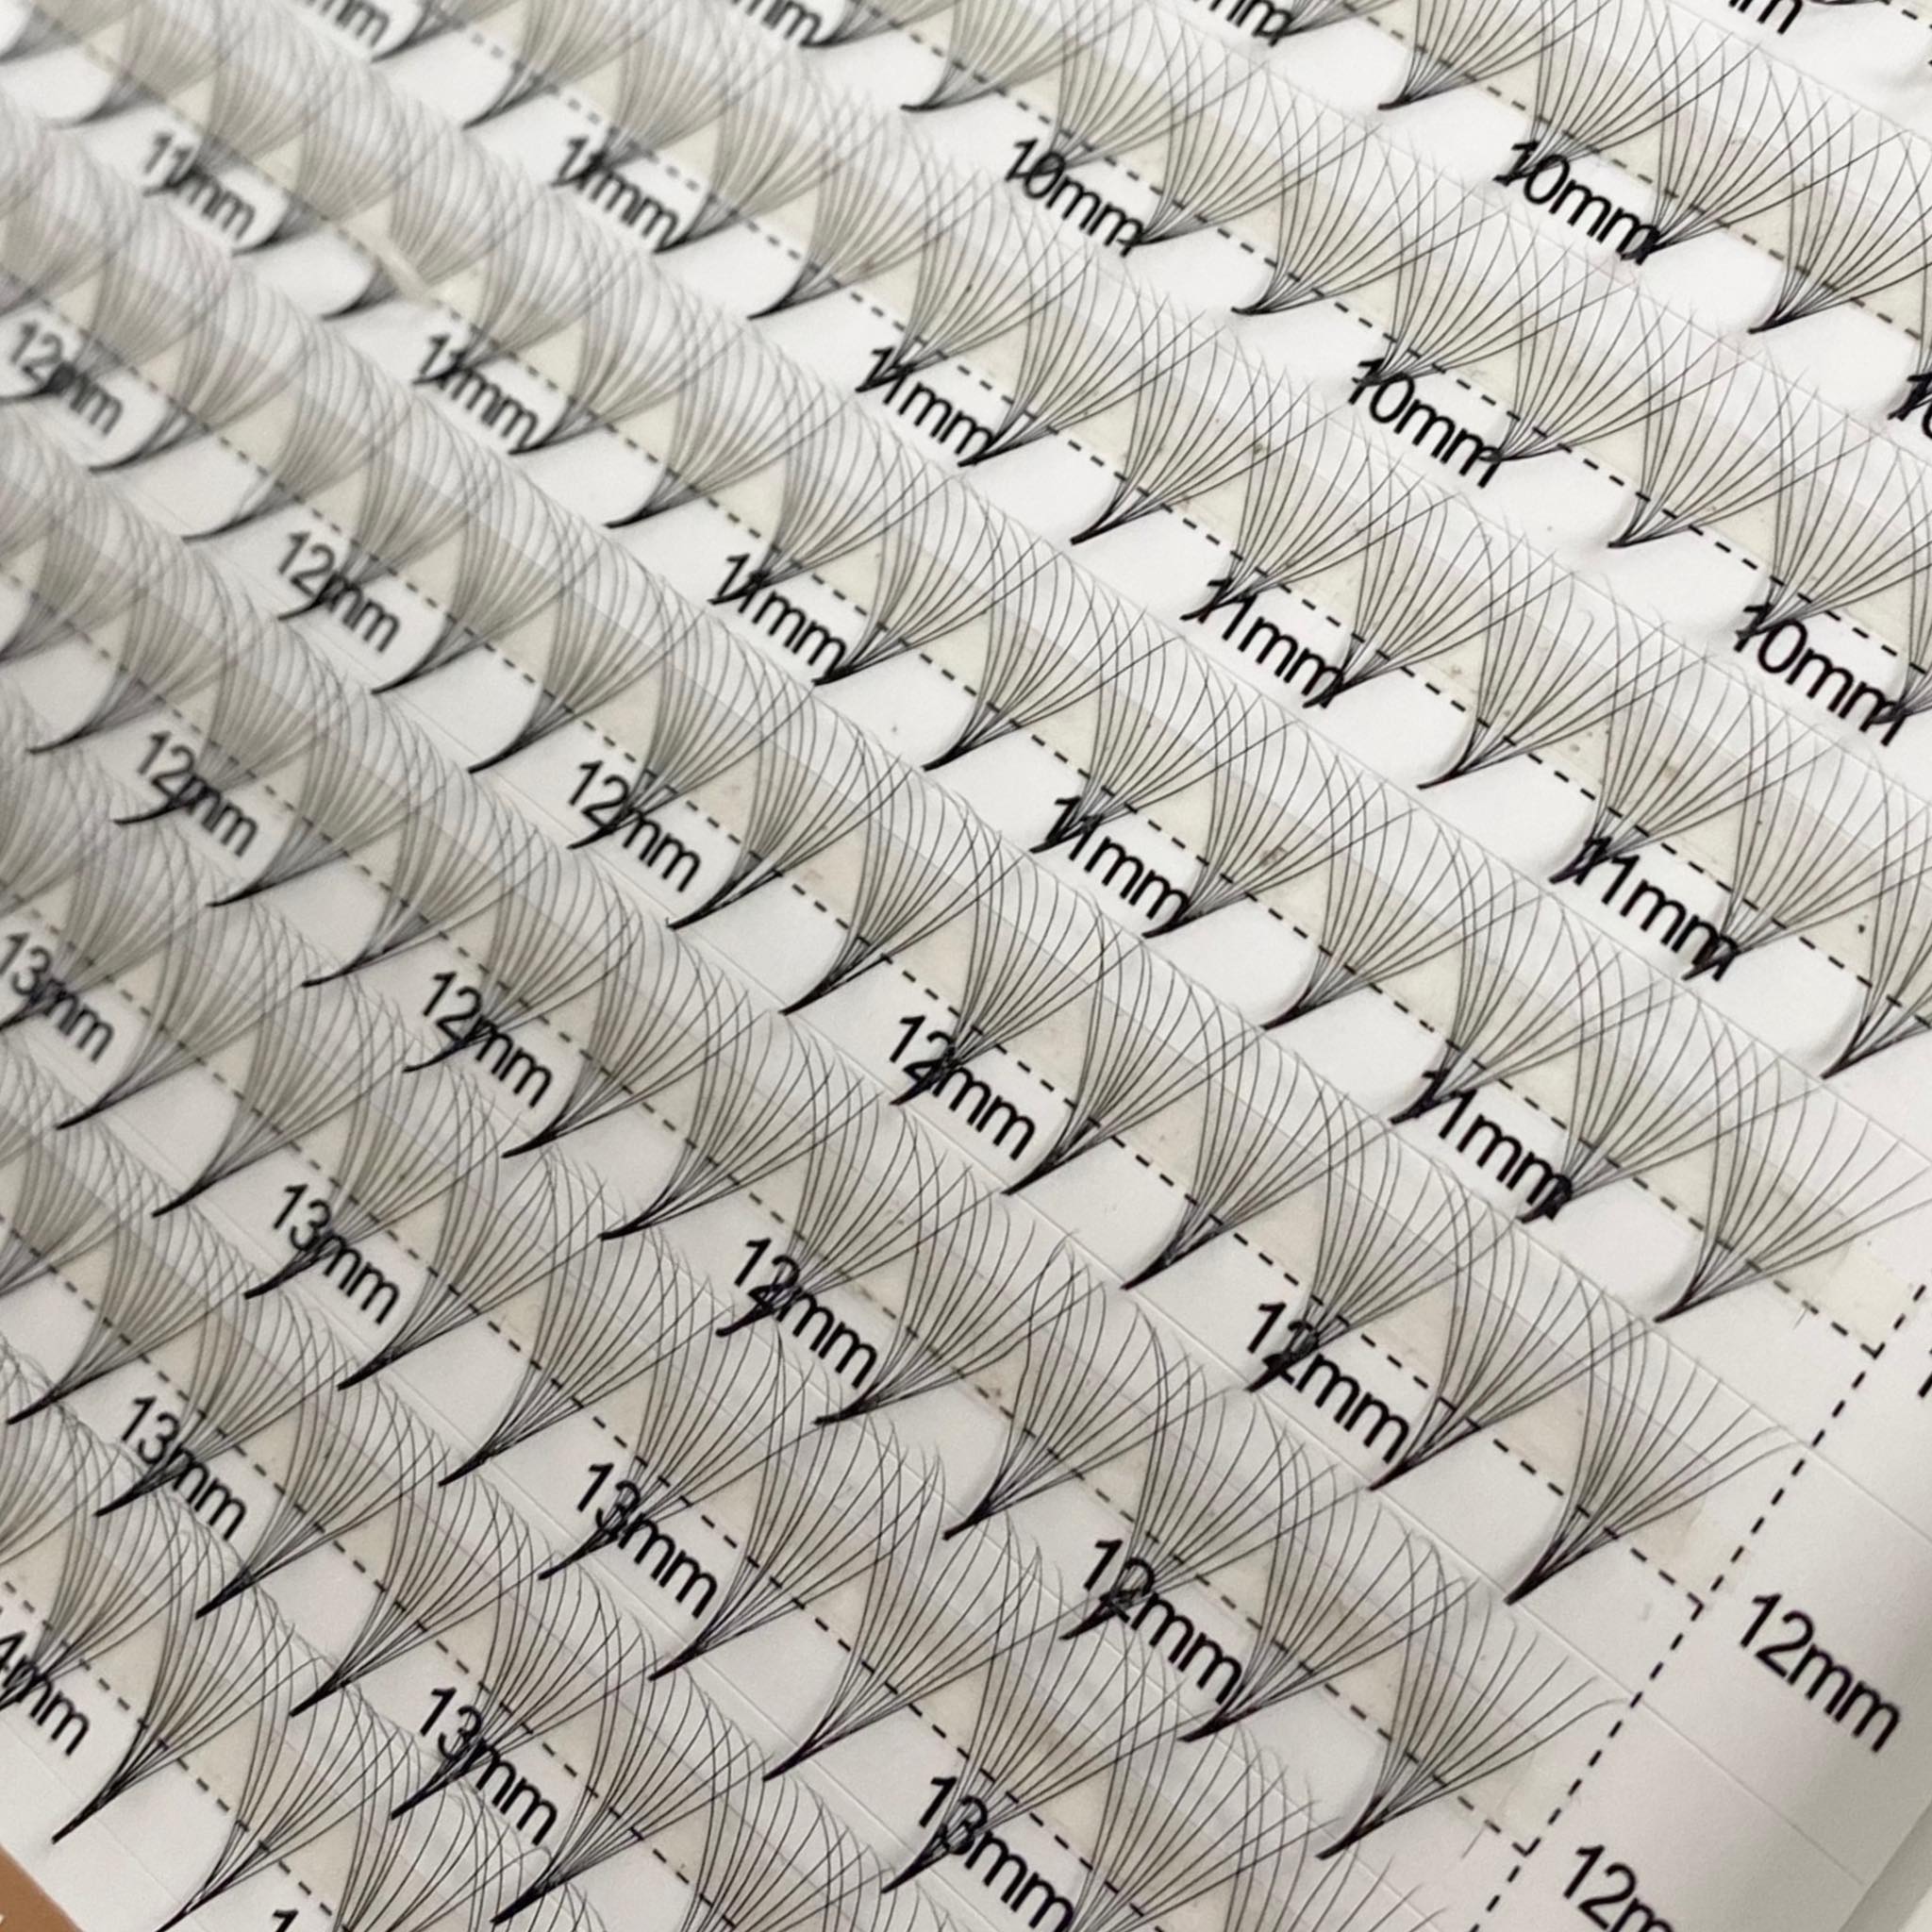 11mm
11mm
10mm
10mm
12mm
11mm
11mm
10mm
12mm
11mm
11mm
10mm
12mm
12mm
11mm
11mm
13mm
12mm
12mm
11mm
13mm
12mm
12mm
13mm
13mm
12mm
12mm
13mm
13mm